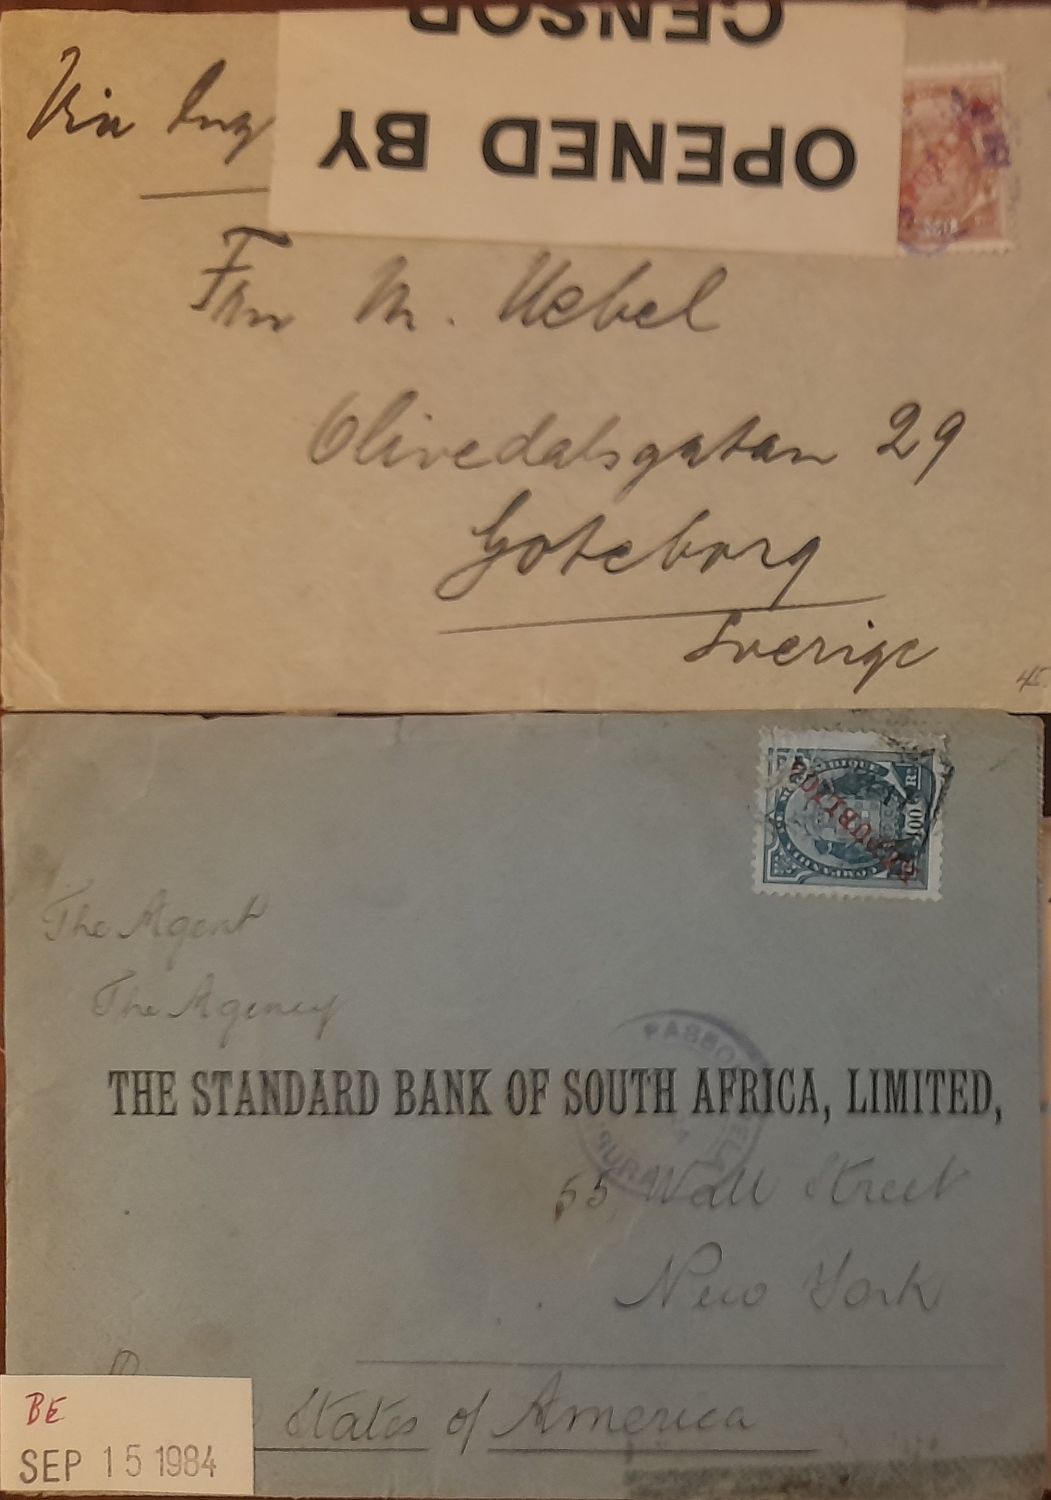 CENSOR
OPENED BY
Via Eng
Frau M. Uebel
Olivedalsgatan 29
Goteborg
Sverige
45
REPUBLICA
100 R
The Agent
The Agency
PASSO
THE STANDARD BANK OF SOUTH AFRICA, LIMITED,
55 Wall Street
New York
States of America
BE
SEP 15 1984